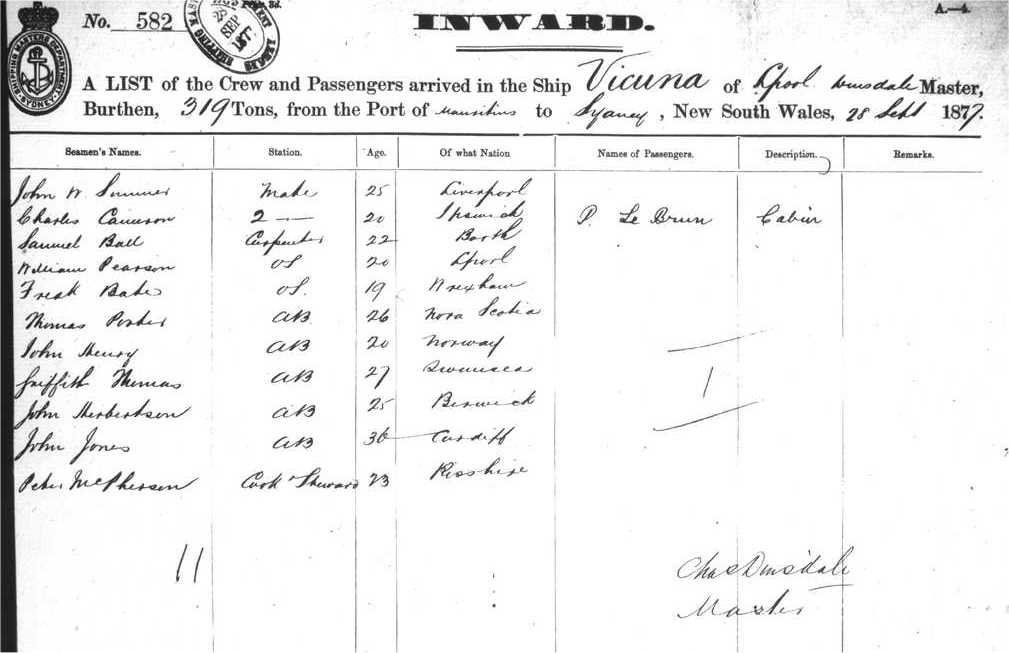 No. 582
INWARD.
A.—4.
SHIPPING MASTERS DEPARTMENT SYDNEY
28 SEP 1877
A LIST of the Crew and Passengers arrived in the Ship Vicuna of Lpool Dinsdale Master,
Burthen, 319 Tons, from the Port of Mauritius to Sydney, New South Wales, 28 Sept 1877.
Seamen's Names. Station. Age. Of what Nation Names of Passengers. Description. Remarks.
John W. Sumner Mate 25 Liverpool
Charles Cameron 2 — 20 Ipswich P. Le Brun Cabin
Samuel Ball Carpenter 22
William Pearson OS 20 Lpool
Bate OS. 19 Wrexham
Thomas Porter AB 26 Nova Scotia
John Henry AB 20 Norway
Griffith Thomas AB 27 Swansea
John Herbertson AB 25 Berwick
John Jones AB 36 Cardiff
Peter McPherson Cook & Steward 23 Rosshire
1
11
Chas Dinsdale
Master